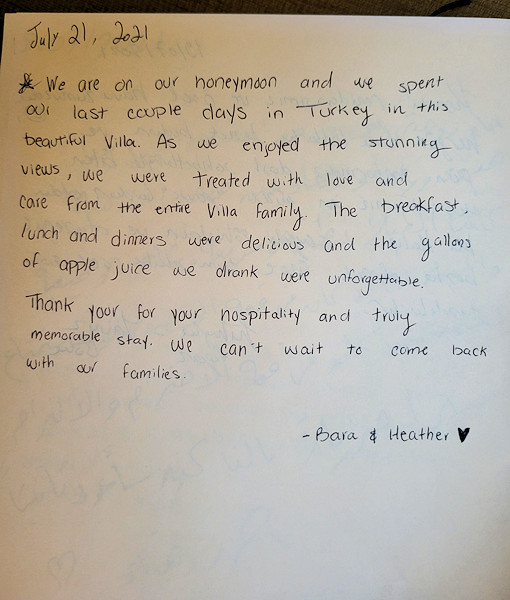 July 21, 2021
We are on our honeymoon and we spent
our last couple days in Turkey in this
beautiful Villa. As we enjoyed the stunning
views, we were treated with love and
care from the entire Villa family. The breakfast,
lunch and dinners were delicious and the gallons
of apple juice we drank were unforgettable.
Thank your for your hospitality and truly
memorable stay. We can't wait to come back
with our families.
- Bara & Heather ♥